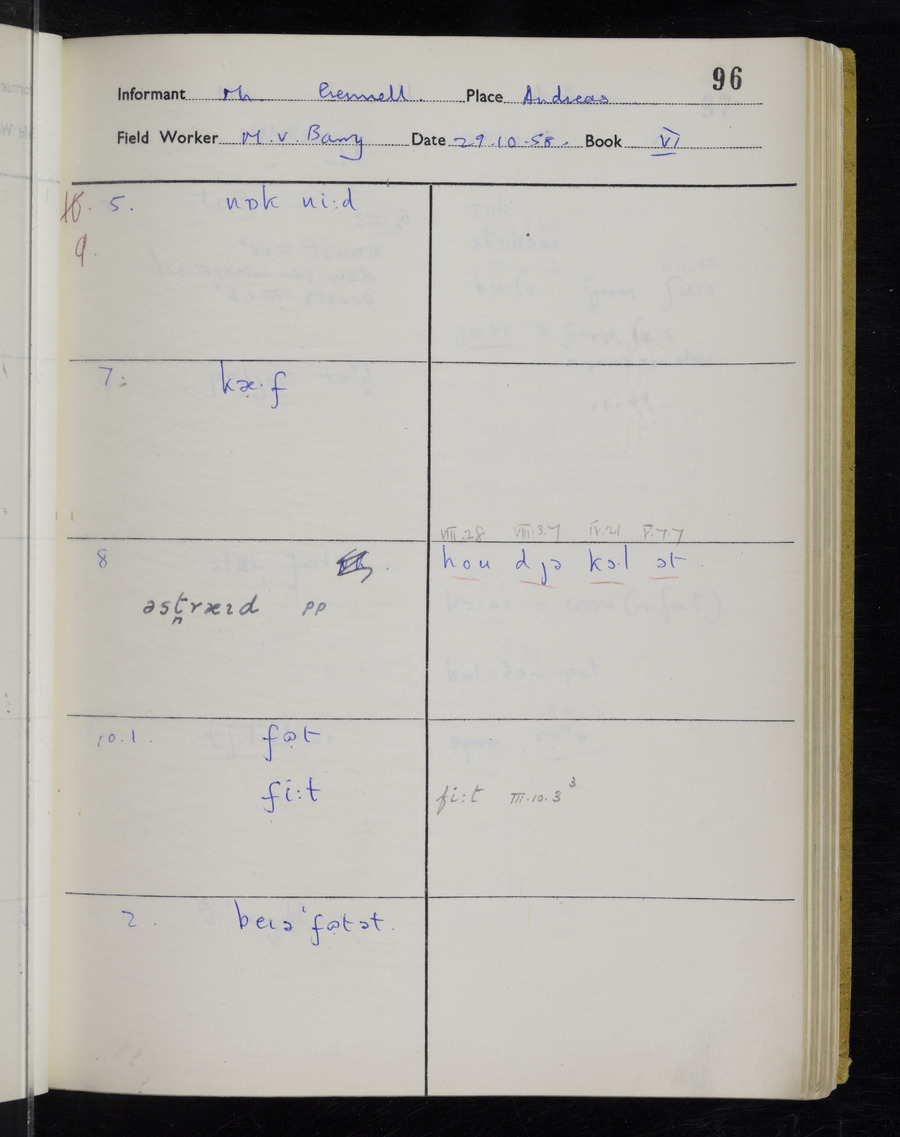 96
Informant Mr. Crennell. Place Andreas
Field Worker M. V. Barry Date 29.10.58. Book VI
9. 5. nɒk ni:d
7: kæ·f
VIII.28 VIII.3.7 IV.21 V.7.7
8 hou djə kɔ·l ət.
əst̪ræɪd pp
10.1. fɷt
fi:t fi:t III.10.3³
2. beɪə'fɷtət.